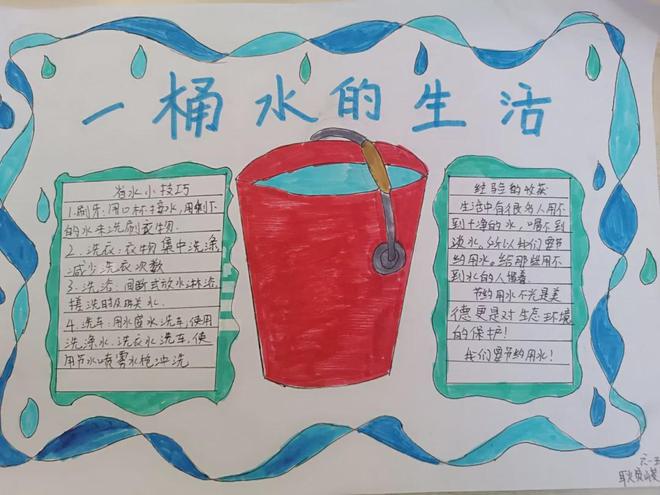 一桶水的生活
省水小技巧
1.刷牙:用口杯接水,用剩下
的水来洗刷杂物.
2.洗衣:衣物集中洗涤
减少洗衣次数
3.洗浴:间断式放水淋浴
搓洗时及时关水.
4.洗车:用水窗水洗车,使用
洗涤水,洗衣水洗车,使
用节水喷雾水枪冲洗
经验的收获
生活中有很多人用不
到干净的水,喝不到
淡水。所以我们要节
约用水。给那些用不
到水的人留着.
节约用水不光是美
德更是对生态环境
的保护!
我们要节约用水!
六一五